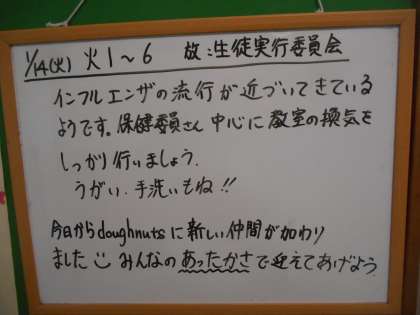 1/14(火) 火1〜6 放:生徒実行委員会
インフルエンザの流行が近づいてきている
ようです。保健委員さん中心に教室の換気を
しっかり行いましょう.
うがい.手洗いもね!!
今日からdoughnutsに新しい仲間が加わり
ました みんなのあったかさで迎えてあげよう.